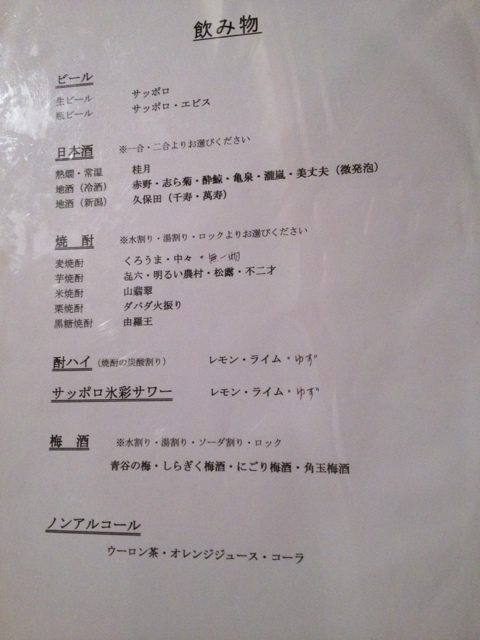 飲み物
ビール
生ビール サッポロ
瓶ビール サッポロ・エビス
日本酒 ※一合・二合よりお選びください
熱燗・常温 桂月
地酒（冷酒） 赤野・志ら菊・酔鯨・亀泉・瀧嵐・美丈夫（微発泡）
地酒（新潟） 久保田（千寿・萬寿）
焼 酎 ※水割り・湯割り・ロックよりお選びください
麦焼酎 くろうま・中々・
芋焼酎 㐂六・明るい農村・松露・不二才
米焼酎 山翡翠
栗焼酎 ダバダ火振り
黒糖焼酎 由羅王
酎ハイ（焼酎の炭酸割り） レモン・ライム・ゆず
サッポロ氷彩サワー レモン・ライム・ゆず
梅 酒 ※水割り・湯割り・ソーダ割り・ロック
青谷の梅・しらぎく梅酒・にごり梅酒・角玉梅酒
ノンアルコール
ウーロン茶・オレンジジュース・コーラ